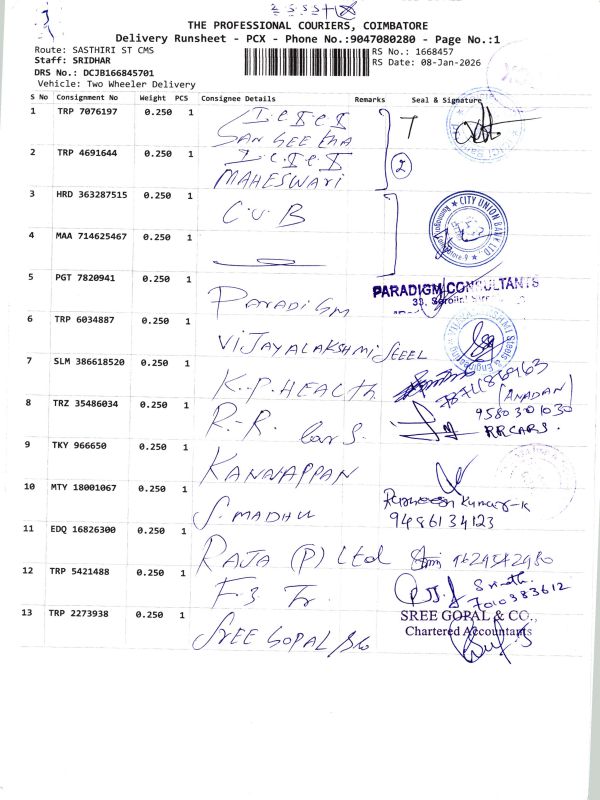 THE PROFESSIONAL COURIERS, COIMBATORE
Delivery Runsheet - PCX - Phone No.:9047080280 - Page No.:1
Route: SASTHIRI ST CMS
RS No.: 1668457
Staff: SRIDHAR
RS Date: 08-Jan-2026
DRS No.: DCJB166845701
Vehicle: Two Wheeler Delivery
S No Consignment No Weight PCS Consignee Details Remarks Seal & Signature
1 TRP 7076197 0.250 1 ICICI
SANGEETHA
2 TRP 4691644 0.250 1 ICICI
MAHESWARI
2
3 HRD 363287515 0.250 1 C.U.B
CITY UNION BANK LTD.
4 MAA 714625467 0.250 1
5 PGT 7820941 0.250 1 PARADIGM
PARADIGM CONSULTANTS
6 TRP 6034887 0.250 1 VIJAYALAKSHMI STEEL
7 SLM 386618520 0.250 1 K.P. HEALTH
(ANADAN)
8 TRZ 35486034 0.250 1 R.R. CARS.
9580301030
RRCARS.
9 TKY 966650 0.250 1 KANNAPPAN
10 MTY 18001067 0.250 1 S. MADHU
Kumar-K
9486134123
11 EDQ 16826300 0.250 1 RAJA (P) Ltd
12 TRP 5421488 0.250 1 F3 Tr.
7010383612
13 TRP 2273938 0.250 1 SREE GOPAL
SREE GOPAL & CO.,
Chartered Accountants